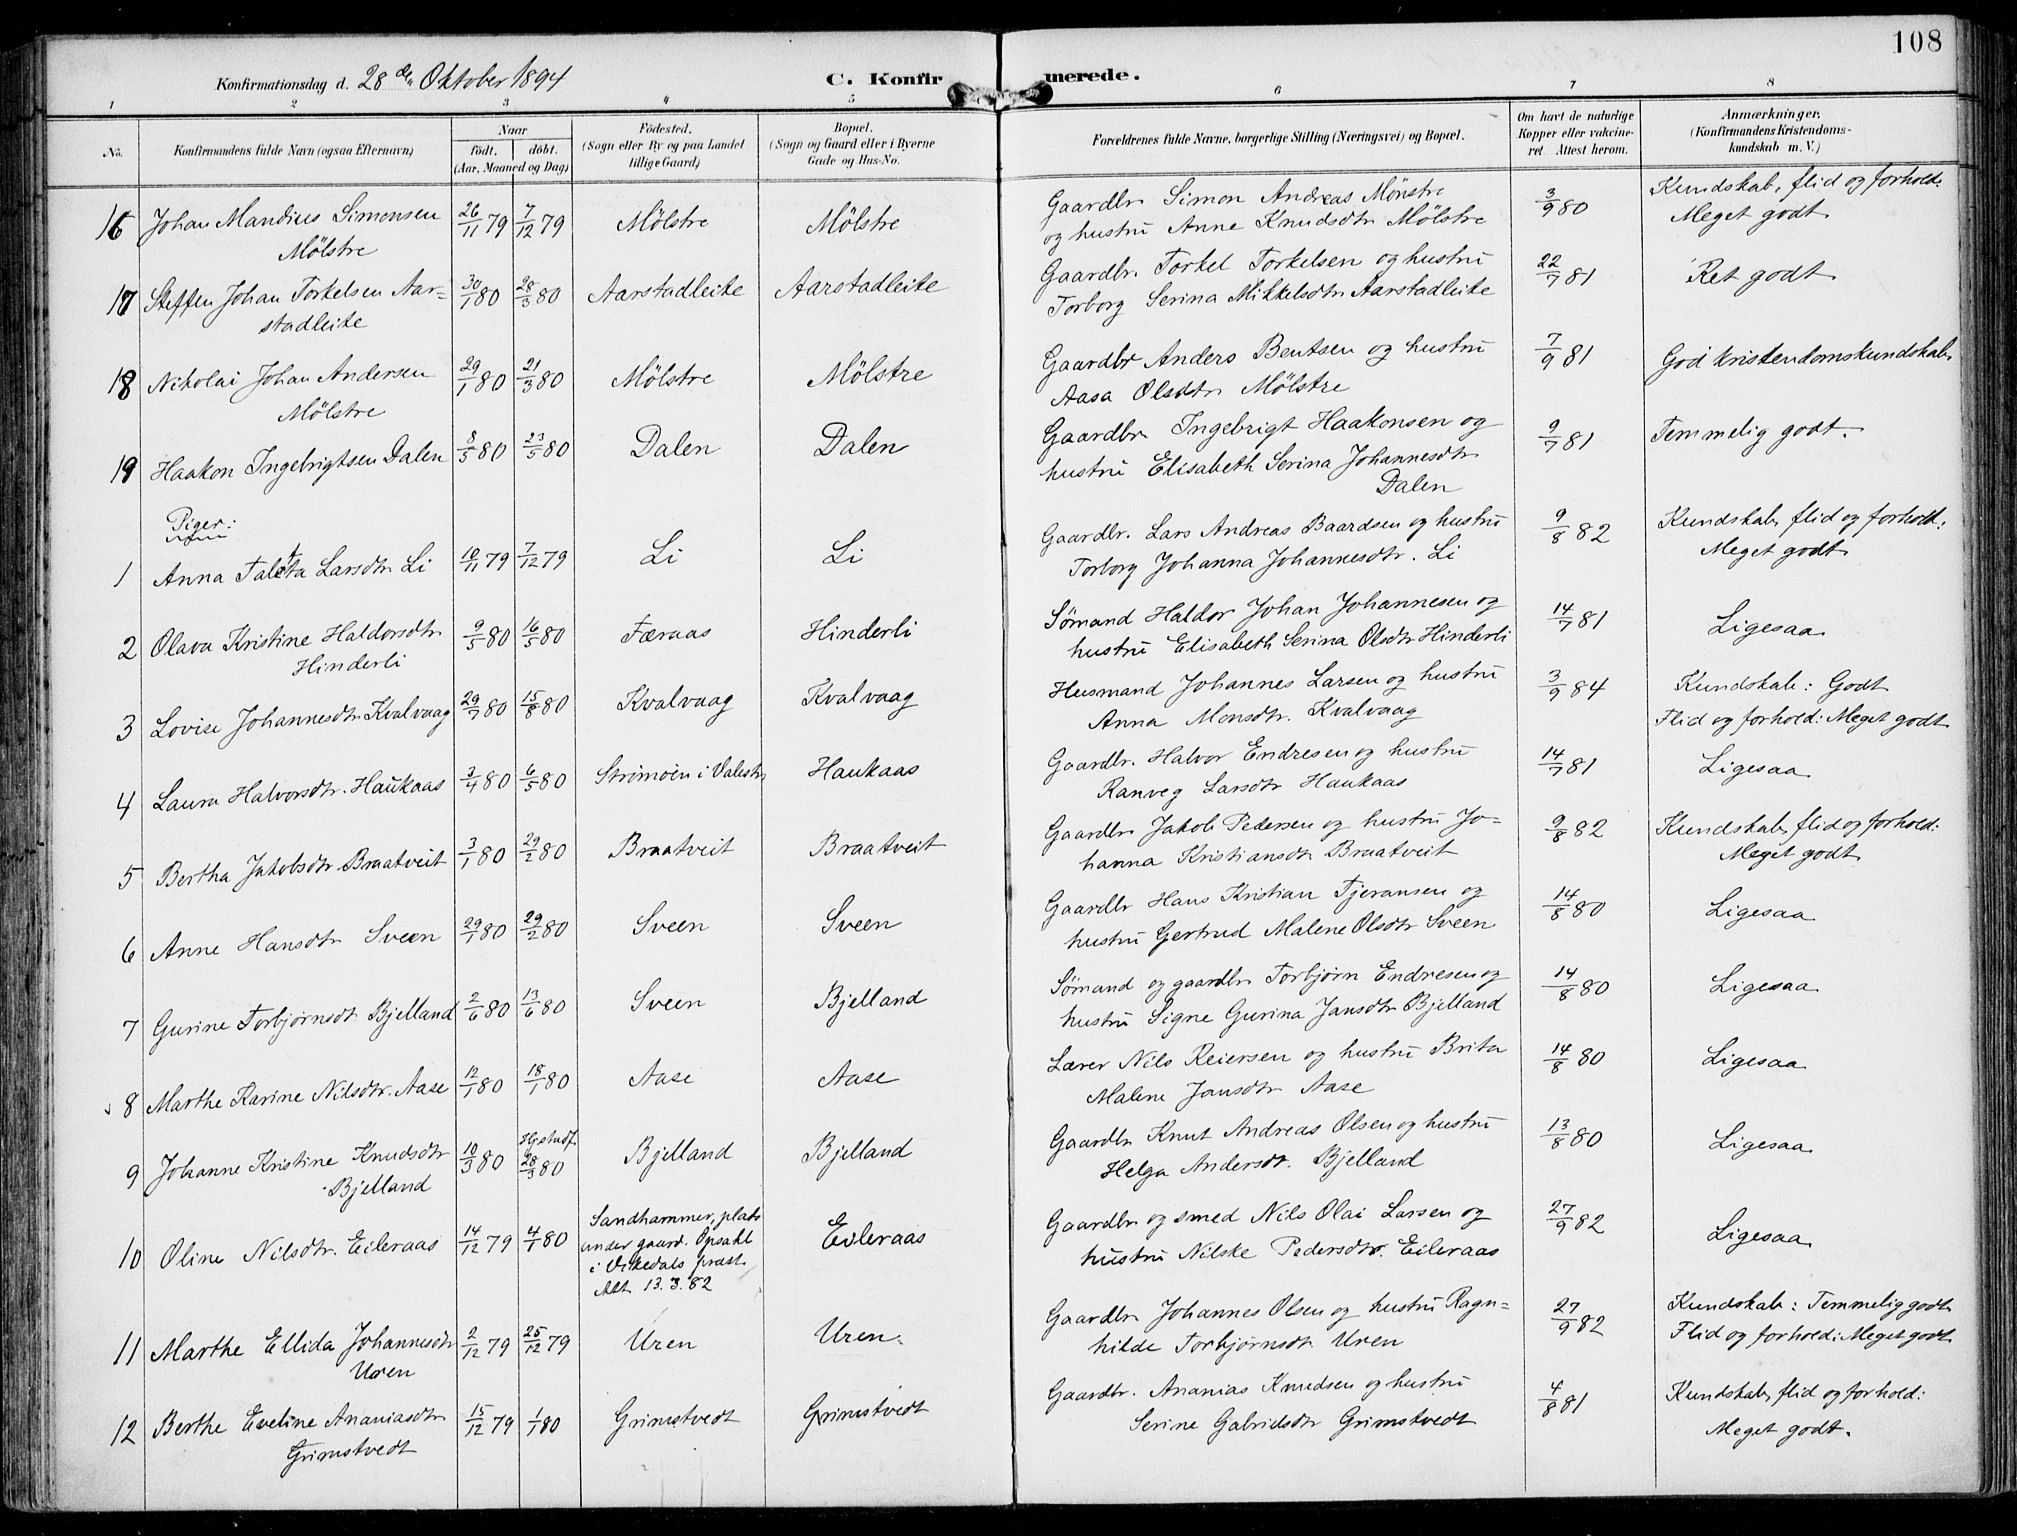 108
Konfirmationsdag d. 28de Oktober 1894
C. Konfirmerede.
1 2 3 4 5 6 7 8
No.
Konfirmandens fulde Navn (ogsaa Efternavn)
Naar
födt. döbt.
(Aar, Maaned og Dag)
Födested.
(Sogn eller By og paa Landet
tillige Gaard)
Bopæl.
(Sogn og Gaard eller i Byerne
Gade og Hus-No.
Forældrenes fulde Navne, borgerlige Stilling (Næringsvei) og Bopæl.
Om havt de naturlige
Kopper eller vakcine-
ret. Attest herom.
Anmærkninger,
(Konfirmandens Kristendoms-
kundskab m. V.)
16 Johan Mandius Simonsen
Mölstre
26/11 79 7/12 79 Mölstre Mölstre
Gaardbr. Simon Andreas Mönstre
og hustru Anne Knudsdtr Mölstre
3/9 80
Kundskab, flid og forhold:
Meget godt.
17 Steffen Johan Torkelsen Aar=
stadleite
30/1 80 28/3 80 Aarstadleite Aarstadleite
Gaardbr. Torkel Torkelsen og hustru
Torborg Serina Mikkelsdtr Aarstadleite
22/7 81 Ret godt.
18 Nikolai Johan Andersen
Mölstre
29/1 80 21/3 80 Mölstre Mölstre
Gaardbr Anders Bentsen og hustru
Aasa Olsdtr. Mölstre
7/9 81 God kristendomskundskab.
19 Haakon Ingebrigtsen Dalen
8/5 80 23/5 80 Dalen Dalen
Gaardbr. Ingebrigt Haakonsen og
hustru Elisabeth Serina Johannesdtr
Dalen
9/7 81 Temmelig godt.
Piger:
1 Anna Taletta Larsdtr. Li
10/11 79 7/12 79 Li Li
Gaardbr. Lars Andreas Baardsen og hustru
Torborg Johanna Johannesdtr. Li
9/8 82
Kundskab, flid og forhold:
Meget godt.
2 Olava Kristine Haldorsdtr
Hinderli
9/5 80 16/5 80 Færaas Hinderli
Sømand Haldor Johan Johannesen og
hustru Elisabeth Serina Olsdtr Hinderli
14/7 81 Ligesaa.
3 Lovise Johannesdtr. Kvalvaag
29/7 80 15/8 80 Kvalvaag Kvalvaag
Husmand Johannes Larsen og hustru
Anna Monsdtr. Kvalvaag
3/9 84
Kundskab: Godt
Flid og forhold: Meget godt
4 Laura Halvorsdtr. Haukaas
3/4 80 6/5 80 Strömöen i Valestr. Haukaas
Gaardbr. Halvor Endresen og hustru
Ranveg Larsdtr Haukaas
14/7 81 Ligesaa.
5 Bertha Jakobsdtr. Braatveit
3/1 80 29/2 80 Braatveit Braatveit
Gaardbr. Jakob Pedersen og hustru Jo=
hanna Kristiansdtr. Braatveit
9/8 82
Kundskab, flid og forhold:
Meget godt.
6 Anne Hansdtr Sveen
29/1 80 29/2 80 Sveen Sveen
Gaardbr Hans Kristian Tjeransen og
hustru Gertrud Malene Olsdtr Sveen
14/8 80 Ligesaa.
7 Gurine Torbjörnsdt. Bjelland
2/6 80 13/6 80 Sveen Bjelland
Sømand og gaardbr. Torbjörn Endresen og
hustru Signe Gurina Jansdtr Bjelland
14/8 80 Ligesaa.
8 Marthe Karine Nilsdtr. Aase
12/1 80 18/1 80 Aase Aase
Lærer Nils Reiersen og hustru Brita
Malene Jansdtr Aase
14/8 80 Ligesaa.
9 Johanne Kristine Knudsdtr
Bjelland
10/3 80 Hj.stadf. 28/3 80 Bjelland Bjelland
Gaardbr. Knut Andreas Olsen og hustru
Helga Andersdt. Bjelland
13/8 80 Ligesaa.
10 Oline Nilsdtr. Eileraas
14/12 79 4/1 80
Sandhammer, plads
under gaard. Opsahl
i Vikedals præst.
Att. 13.3.82
Eileraas
Gaardbr. og smed Nils Olai Larsen og
hustru Nilske Pedersdtr. Eileraas
27/9 82 Ligesaa.
11 Marthe Ellida Johannesdtr
Uren
2/12 79 25/12 79 Uren Uren.
Gaardbr. Johannes Olsen og hustru Ragn=
hilde Torbjörnsdtr. Uren
27/9 82
Kundskab: Temmelig godt.
Flid og forhold: Meget godt.
12 Berthe Eveline Ananiasdtr
Grimstvedt
15/12 79 1/1 80 Grimstvedt Grimstvedt
Gaardbr. Ananias Knudsen og hustru
Serine Gabrielsdtr Grimstvedt
4/8 81
Kundskab, flid og forhold:
Meget godt.